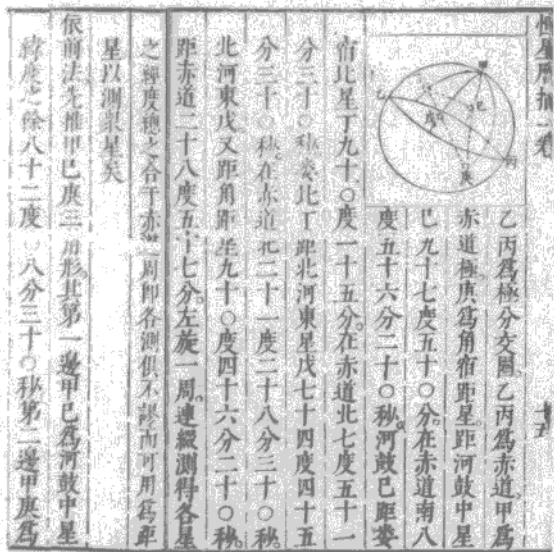 恒星曆指一卷
十五
甲
乙
丙
巳
戊
庚
乙丙爲極分交圈乙丙爲赤道甲爲
赤道極庚爲角宿距星距河鼓中星
巳九十七度五十〇分在赤道南八
度五十六分二十〇秒河鼓巳距婁
宿北星丁九十〇度一十五分在赤道北七度五十一
分三十〇秒婁北丁距北河東星戊七十四度四十五
分三十〇秒在赤道北二十一度二十八分三十〇秒
北河東戊又距角距星九十〇度四十六分二十〇秒
距赤道二十八度五十七分左旋一周連綴測得各星
之經度總之合于赤道周即各測俱不謬而可用爲距
星以測衆星矣
依前法先推甲巳庚三角形其第一邊甲巳爲河鼓中星
緯度之餘八十二度〇八分三十〇秒第二邊甲庚爲